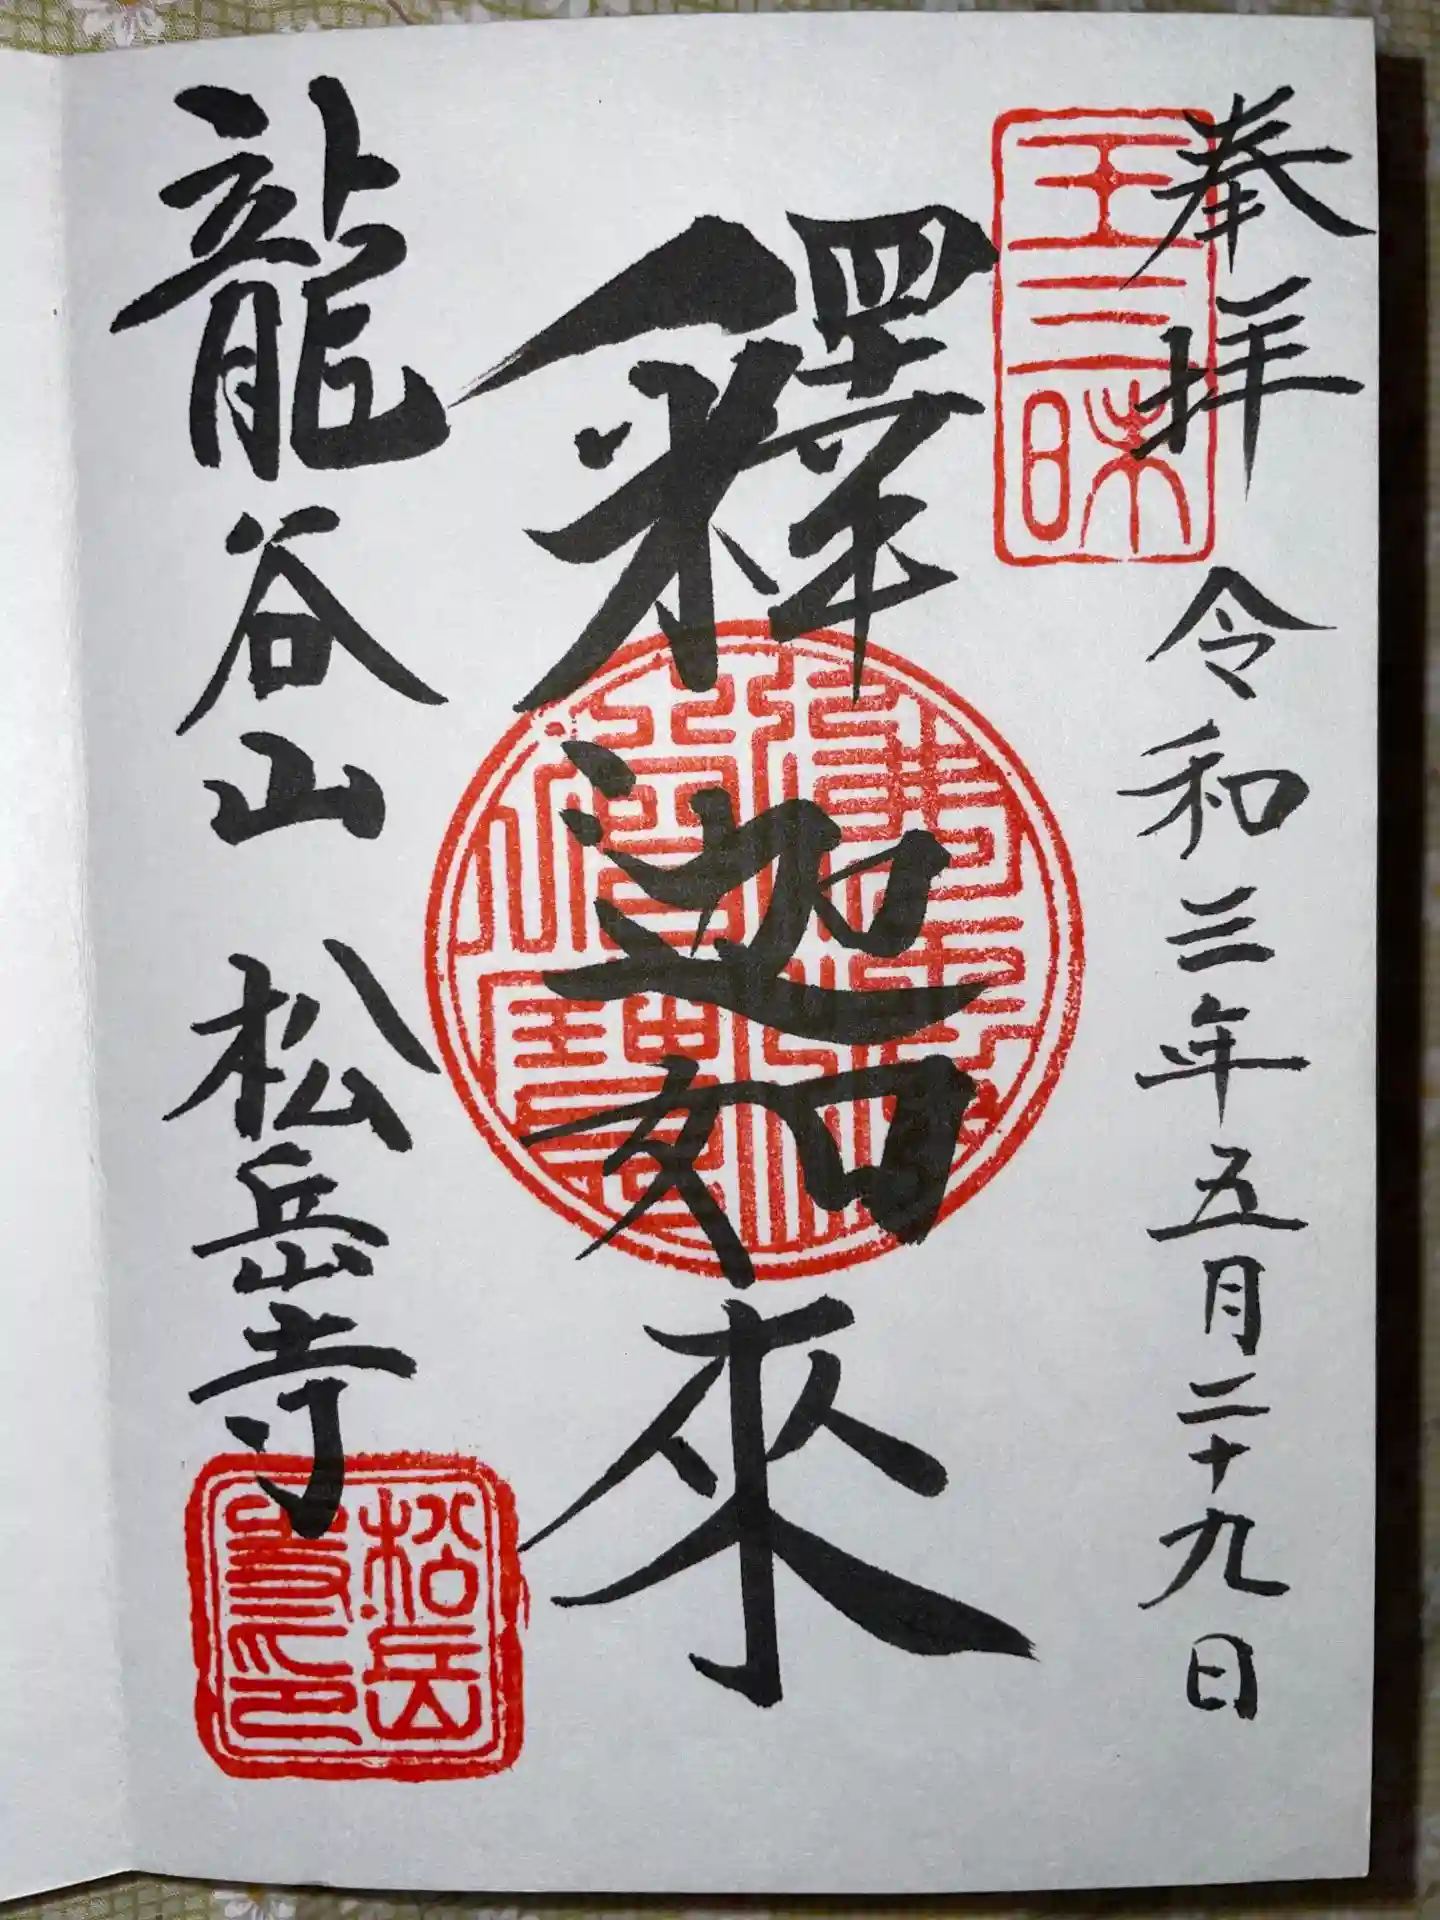 奉拝
令和三年五月二十九日
王三昧
釋迦如來
龍谷山 松岳寺
松岳寺印